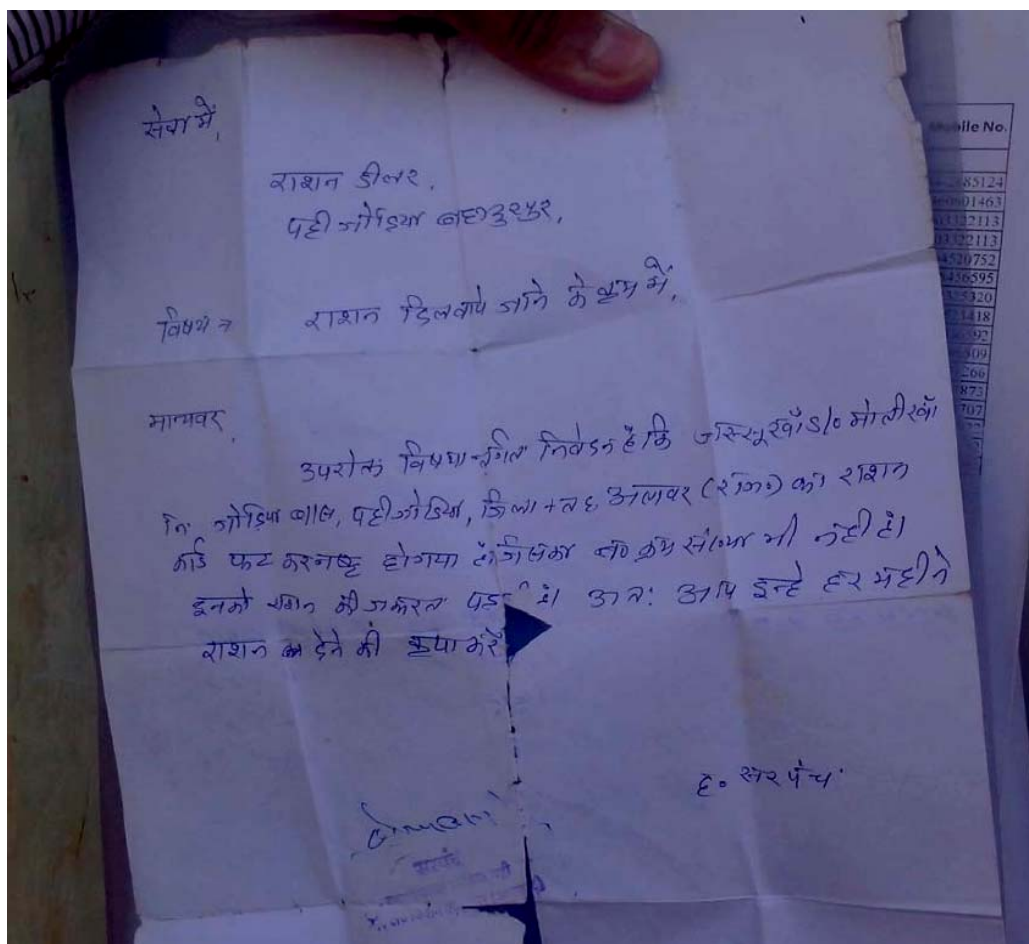 सेवा में,
राशन डीलर,
पट्टी गोडिया बहादुरपुर,
विषय →
राशन दिलवाये जाने के क्रम में,
मान्यवर,
उपरोक्त विषयान्तर्गत निवेदन है कि S/o मोलीखाँ
नि. गोडिया बास, पट्टी गोडिया, जिला + तह. अलवर (राज०) का राशन
कार्ड फट कर नष्ट होगया है। जिसका न० क्रम संख्या भी नही है।
इनको राशन की जरूरत है। अतः आप इन्हे हर महीने
राशन देने की कृपा करें
ह० सरपंच
सरपंच
Mobile No.
85124
01463
22113
22113
4520752
56595
5320
3418
592
509
266
873
707